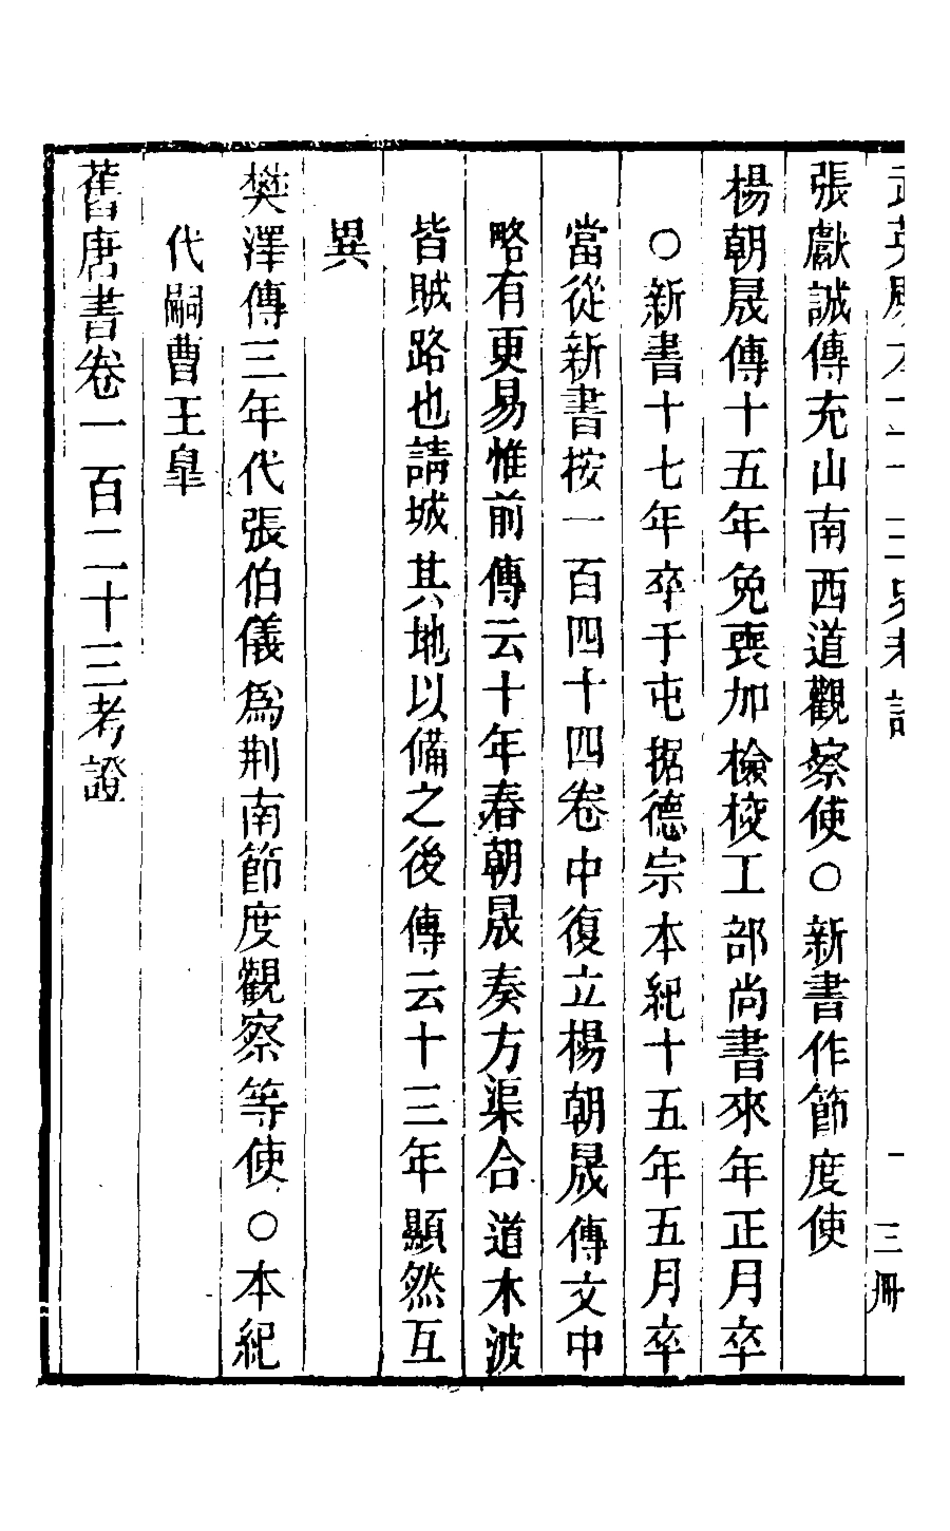 張獻誠傳充山南西道觀察使○新書作節度使
楊朝晟傳十五年免喪加檢校工部尚書來年正月卒
○新書十七年卒于屯据德宗本紀十五年五月卒
當從新書按一百四十四卷中復立楊朝晟傳文中
略有更易惟前傳云十年春朝晟奏方渠合道木波
皆賊路也請城其地以備之後傳云十三年顯然互
異
樊澤傳三年代張伯儀爲荆南節度觀察等使○本紀
代嗣曹王臯
舊唐書卷一百二十三考證
三册